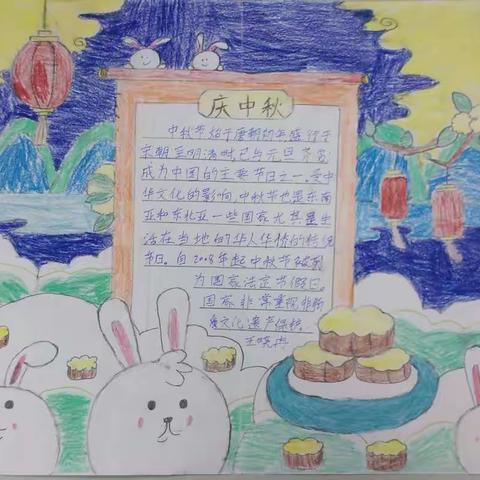 庆中秋
中秋节始于唐朝初年,盛行于
宋朝,至明清时,已与元旦齐名
成为中国的主要节日之一。受中
华文化的影响,中秋节也是东南
亚和东北亚一些国家尤其是生
活在当地的华人华侨的传统
节日。自2008年起中秋节被列
为国家法定节假日。
国家非常重视非物
质文化遗产保护,
王晓冉